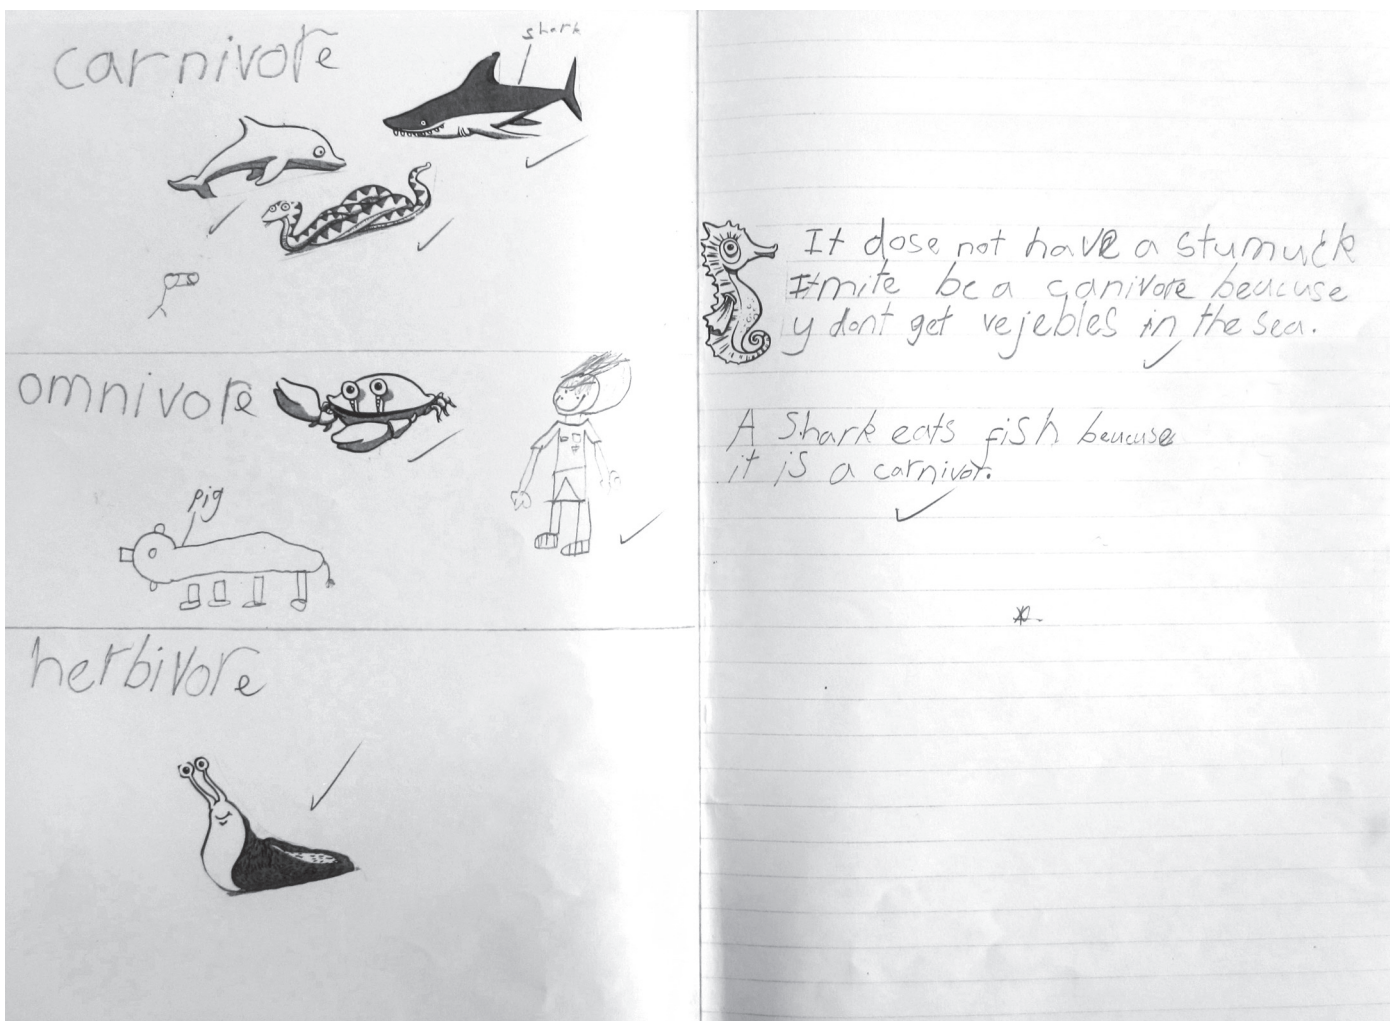 carnivore
shark
omnivore
pig
herbivore
It dose not have a stumuck
It mite be a canivore beucuse
y dont get vejebles in the sea.
A Shark eats fish beucuse
it is a carnivor.